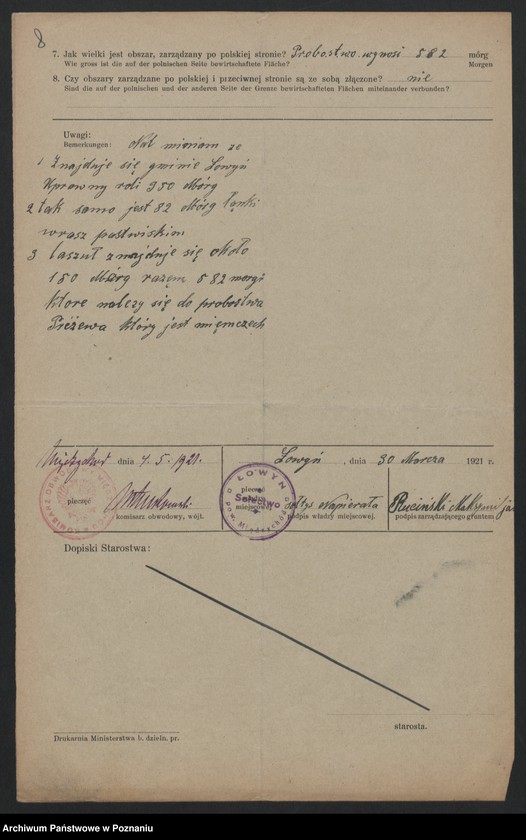 8
7. Jak wielki jest obszar, zarządzany po polskiej stronie? Probostwo wynosi 582 mórg
Wie gross ist die auf der polnischen Seite bewirtschaftete Fläche? Morgen
8. Czy obszary zarządzane po polskiej i przeciwnej stronie są ze sobą złączone? nie
Sind die auf der polnischen und der anderen Seite der Grenze bewirtschafteten Flächen miteinander verbunden?
Uwagi:
Bemerkungen: miniam ze
1 Znajduje się gminie Lowyń
Uprawny roli 350 Mórg
2 tak samo jest 82 Mórg łąnki
wrasz pastwiskim
3 laszuł znajduje się około
150 Mórg razem 582 morgi
ktore nalezy się do probostwa
który jest
dnia 4. 5. 1921.
Lowyń, dnia 30 Marca 1921 r.
pieczęć
komisarz obwodowy, wójt.
ŁOWYŃ
Sołectwo
pieczęć
miejscowej
sołtys Napierała
podpis władzy miejscowej.
Ruciński
podpis zarządzającego gruntem
Dopiski Starostwa:
starosta.
Drukarnia Ministerstwa b. dzieln. pr.
Archiwum Państwowe w Poznaniu